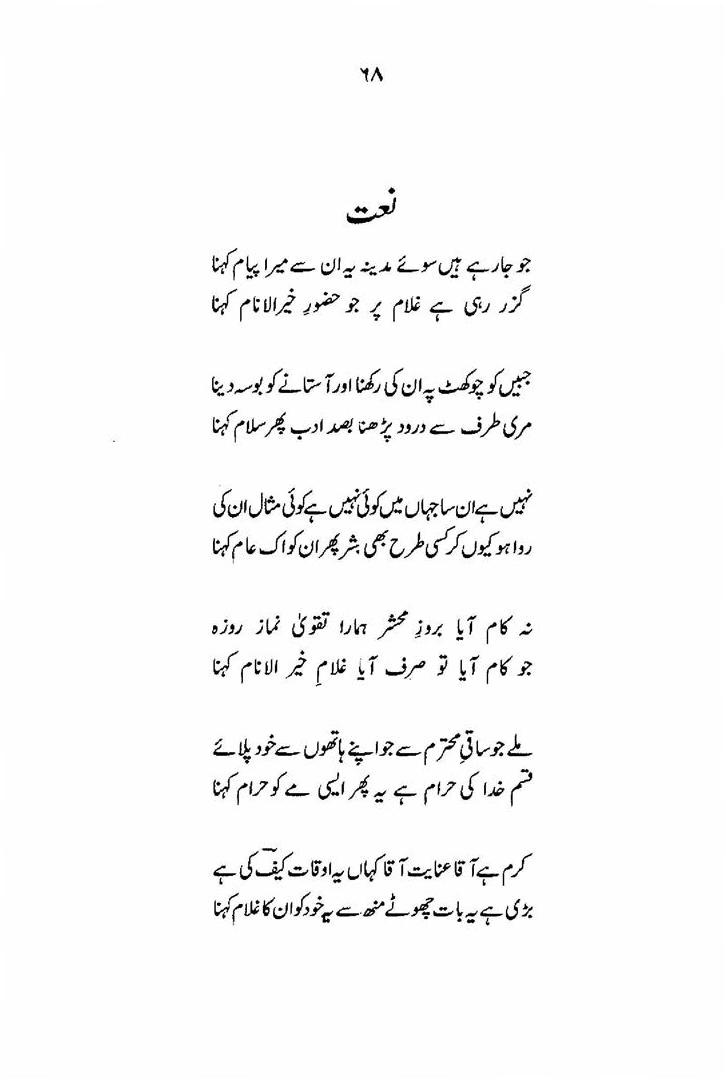 ۶۸
نعت
جو جا رہے ہیں سوئے مدینہ یہ ان سے میرا پیام کہنا
گزر رہی ہے غلام پر جو حضورِ خیر الانام کہنا
جبیں کو چوکھٹ پہ ان کی رکھنا اور آستانے کو بوسہ دینا
مری طرف سے درود پڑھنا بصد ادب پھر سلام کہنا
نہیں ہے ان سا جہاں میں کوئی نہیں ہے کوئی مثال ان کی
روا ہو کیوں کر کسی طرح بھی بشر پھر ان کو اک عام کہنا
نہ کام آیا بروزِ محشر ہمارا تقویٰ نماز روزہ
جو کام آیا تو صرف آیا غلامِ خیر الانام کہنا
ملے جو ساقیِ محترم سے جو اپنے ہاتھوں سے خود پلائے
قسم خدا کی حرام ہے یہ پھر ایسی مے کو حرام کہنا
کرم ہے آقا عنایت آقا کہاں یہ اوقات کیفؔ کی ہے
بڑی ہے یہ بات چھوٹے منھ سے یہ خود کو ان کا غلام کہنا